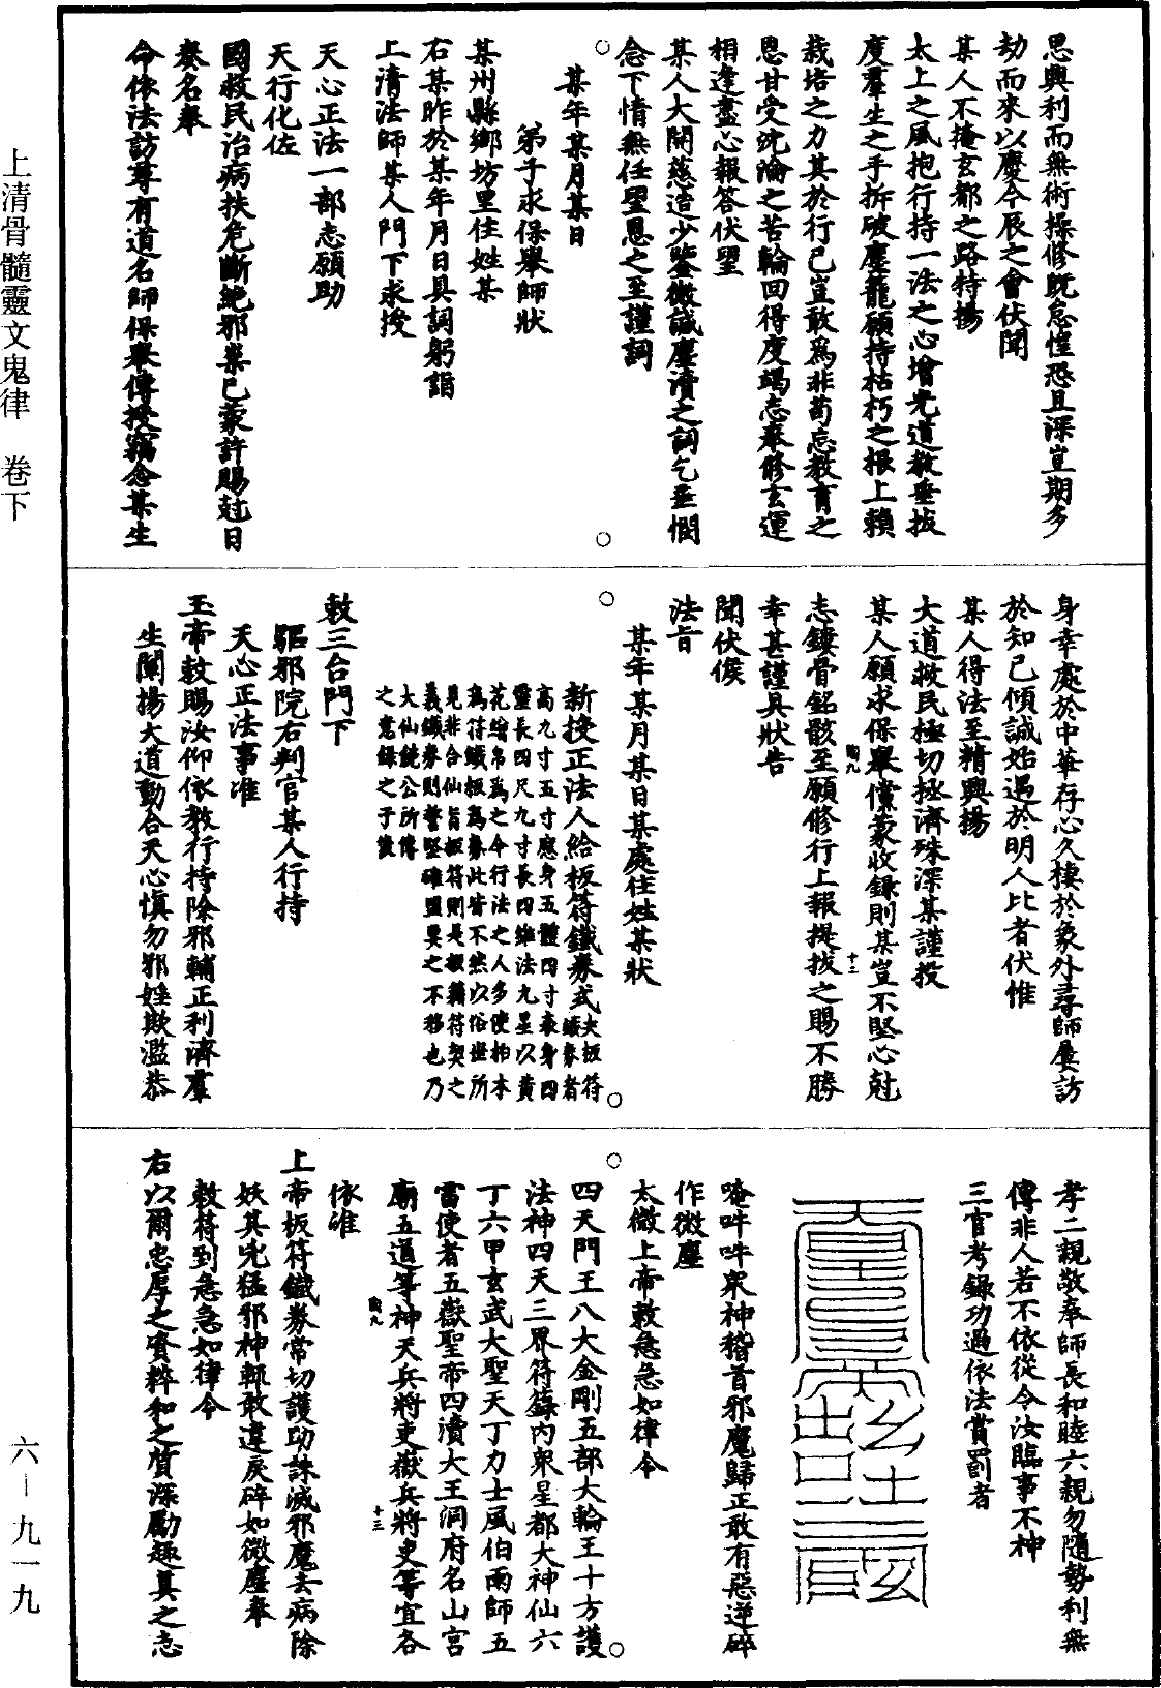 思興利而無術操修既怠惶恐且深豈期多
劫而來以慶今辰之會伏聞
某人不掩玄都之路特揚
太上之風抱行持一法之心增光道教垂拔
度羣生之手拆破塵籠願持枯朽之根上賴
栽培之力其於行己豈敢為非苟忘教育之
恩甘受沈淪之苦輪回得度竭志奉修玄運
相逢盡心報答伏望
某人大開慈造少鑒微誠塵瀆之詞乞垂憫
念下情無任望恩之至謹詞
某年某月某日
弟子求保舉師狀
某州縣鄉坊里住姓某
右某昨於某年月日具詞躬詣
上清法師某人門下求授
天心正法一部志願助
天行化佐
國救民治病扶危斷絕邪祟已蒙許賜尅日
奏名奉
命依法訪尋有道名師保舉傳授竊念某生
身幸處於中華存心久棲於象外尋師屢訪
於知己傾誠始遇於明人比者伏惟
某人得法至精興揚
大道救民極切拯濟殊深某謹投
某人願求保舉儻蒙收錄則某豈不堅心尅
志鏤骨銘骸至願修行上報提拔之賜不勝
幸甚謹具狀告
聞伏候
法旨
某年某月某日某處住姓某狀
新授正法人給板符鐵券式夫板符鐵券者
高九寸五寸應身五體四寸表身四
靈長四尺九寸長四維法九星以黃
花繒帛為之今行法之人多使柏木
為符鐵板為券此皆不然以俗世所
見非合仙旨板符則是板籍符契之
義鐵券則誓堅確盟要之不移也乃
大仙饒公所傳
之意錄之于後
敕三台門下
驅邪院右判官某人行持
天心正法事准
玉帝敕賜汝仰依教行持除邪輔正利濟羣
生闡揚大道動合天心慎勿邪婬欺濫恭
孝二親敬奉師長和睦六親勿隨勢利無
傳非人若不依從令汝臨事不神
三官考錄功過依法賞罰者
唵吽吽衆神稽首邪魔歸正敢有惡逆碎
作微塵
太微上帝敕急急如律令
四天門王八大金剛五部大輪王十方護
法神四天三界符籙內衆星都大神仙六
丁六甲玄武大聖天丁力士風伯雨師五
雷使者五嶽聖帝四瀆大王洞府名山宮
廟五道等神天兵將吏嶽兵將吏等宜各
依准
上帝板符鐵券常切護功誅滅邪魔去病除
妖其兇猛邪神輒敢違戾碎如微塵奉
敕符到急急如律令
右以爾忠厚之資粹和之質深勵趣真之志
上清骨髓靈文鬼律　卷下
六—九一九